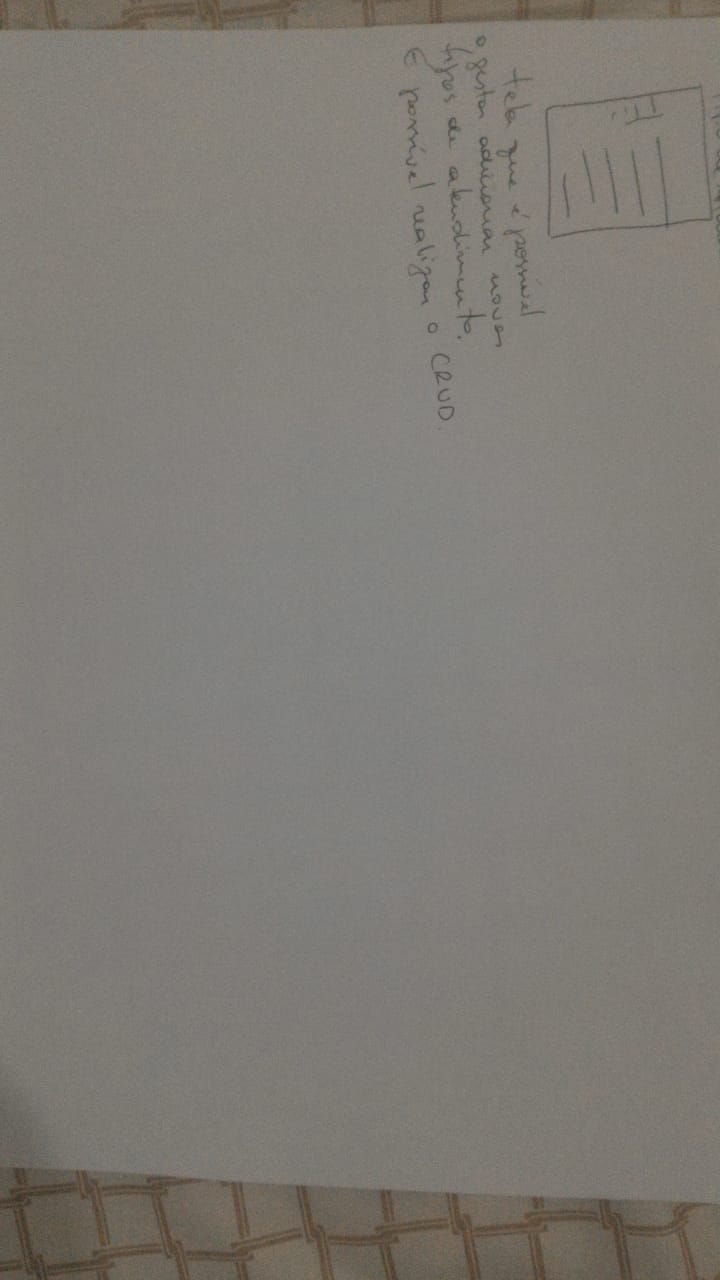 tela que é possível
o gestor adicionar novos
tipos de atendimento.
É possível realizar o CRUD.